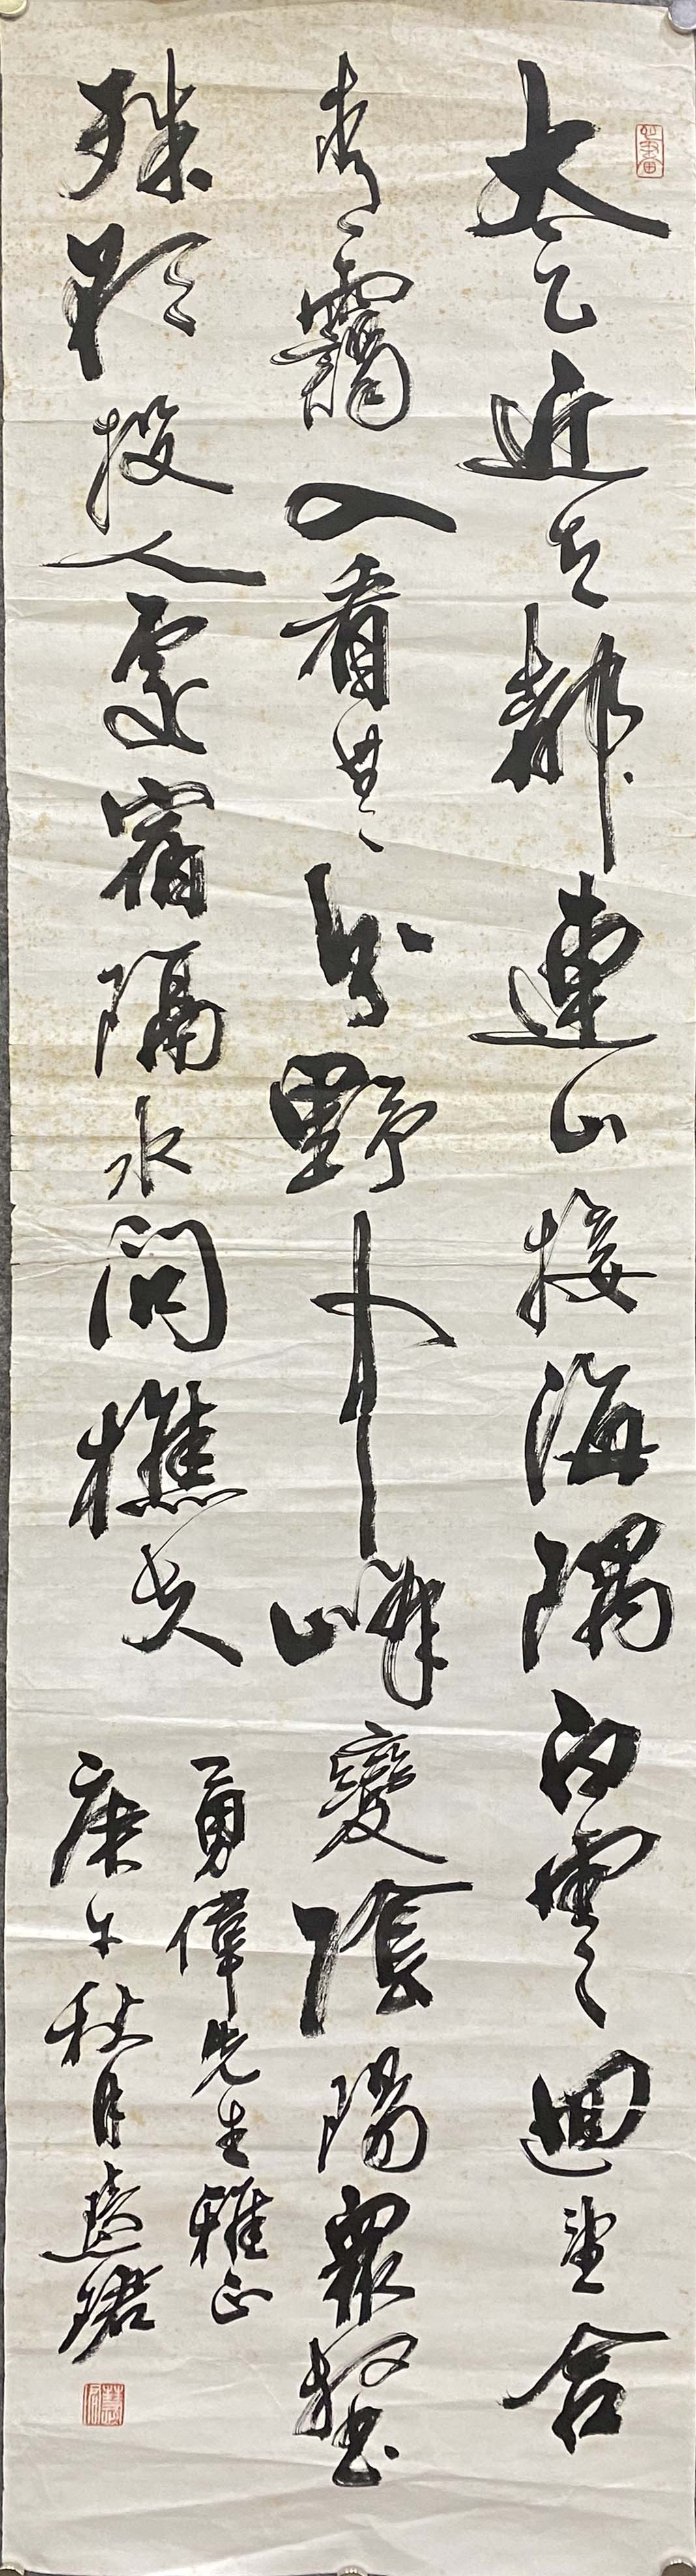 太乙近天都連山接海隅白雲迴望合
青靄入看無分野中峰變陰陽眾壑
殊欲投人處宿隔水問樵夫
勇偉先生雅正
庚午秋月慧珺